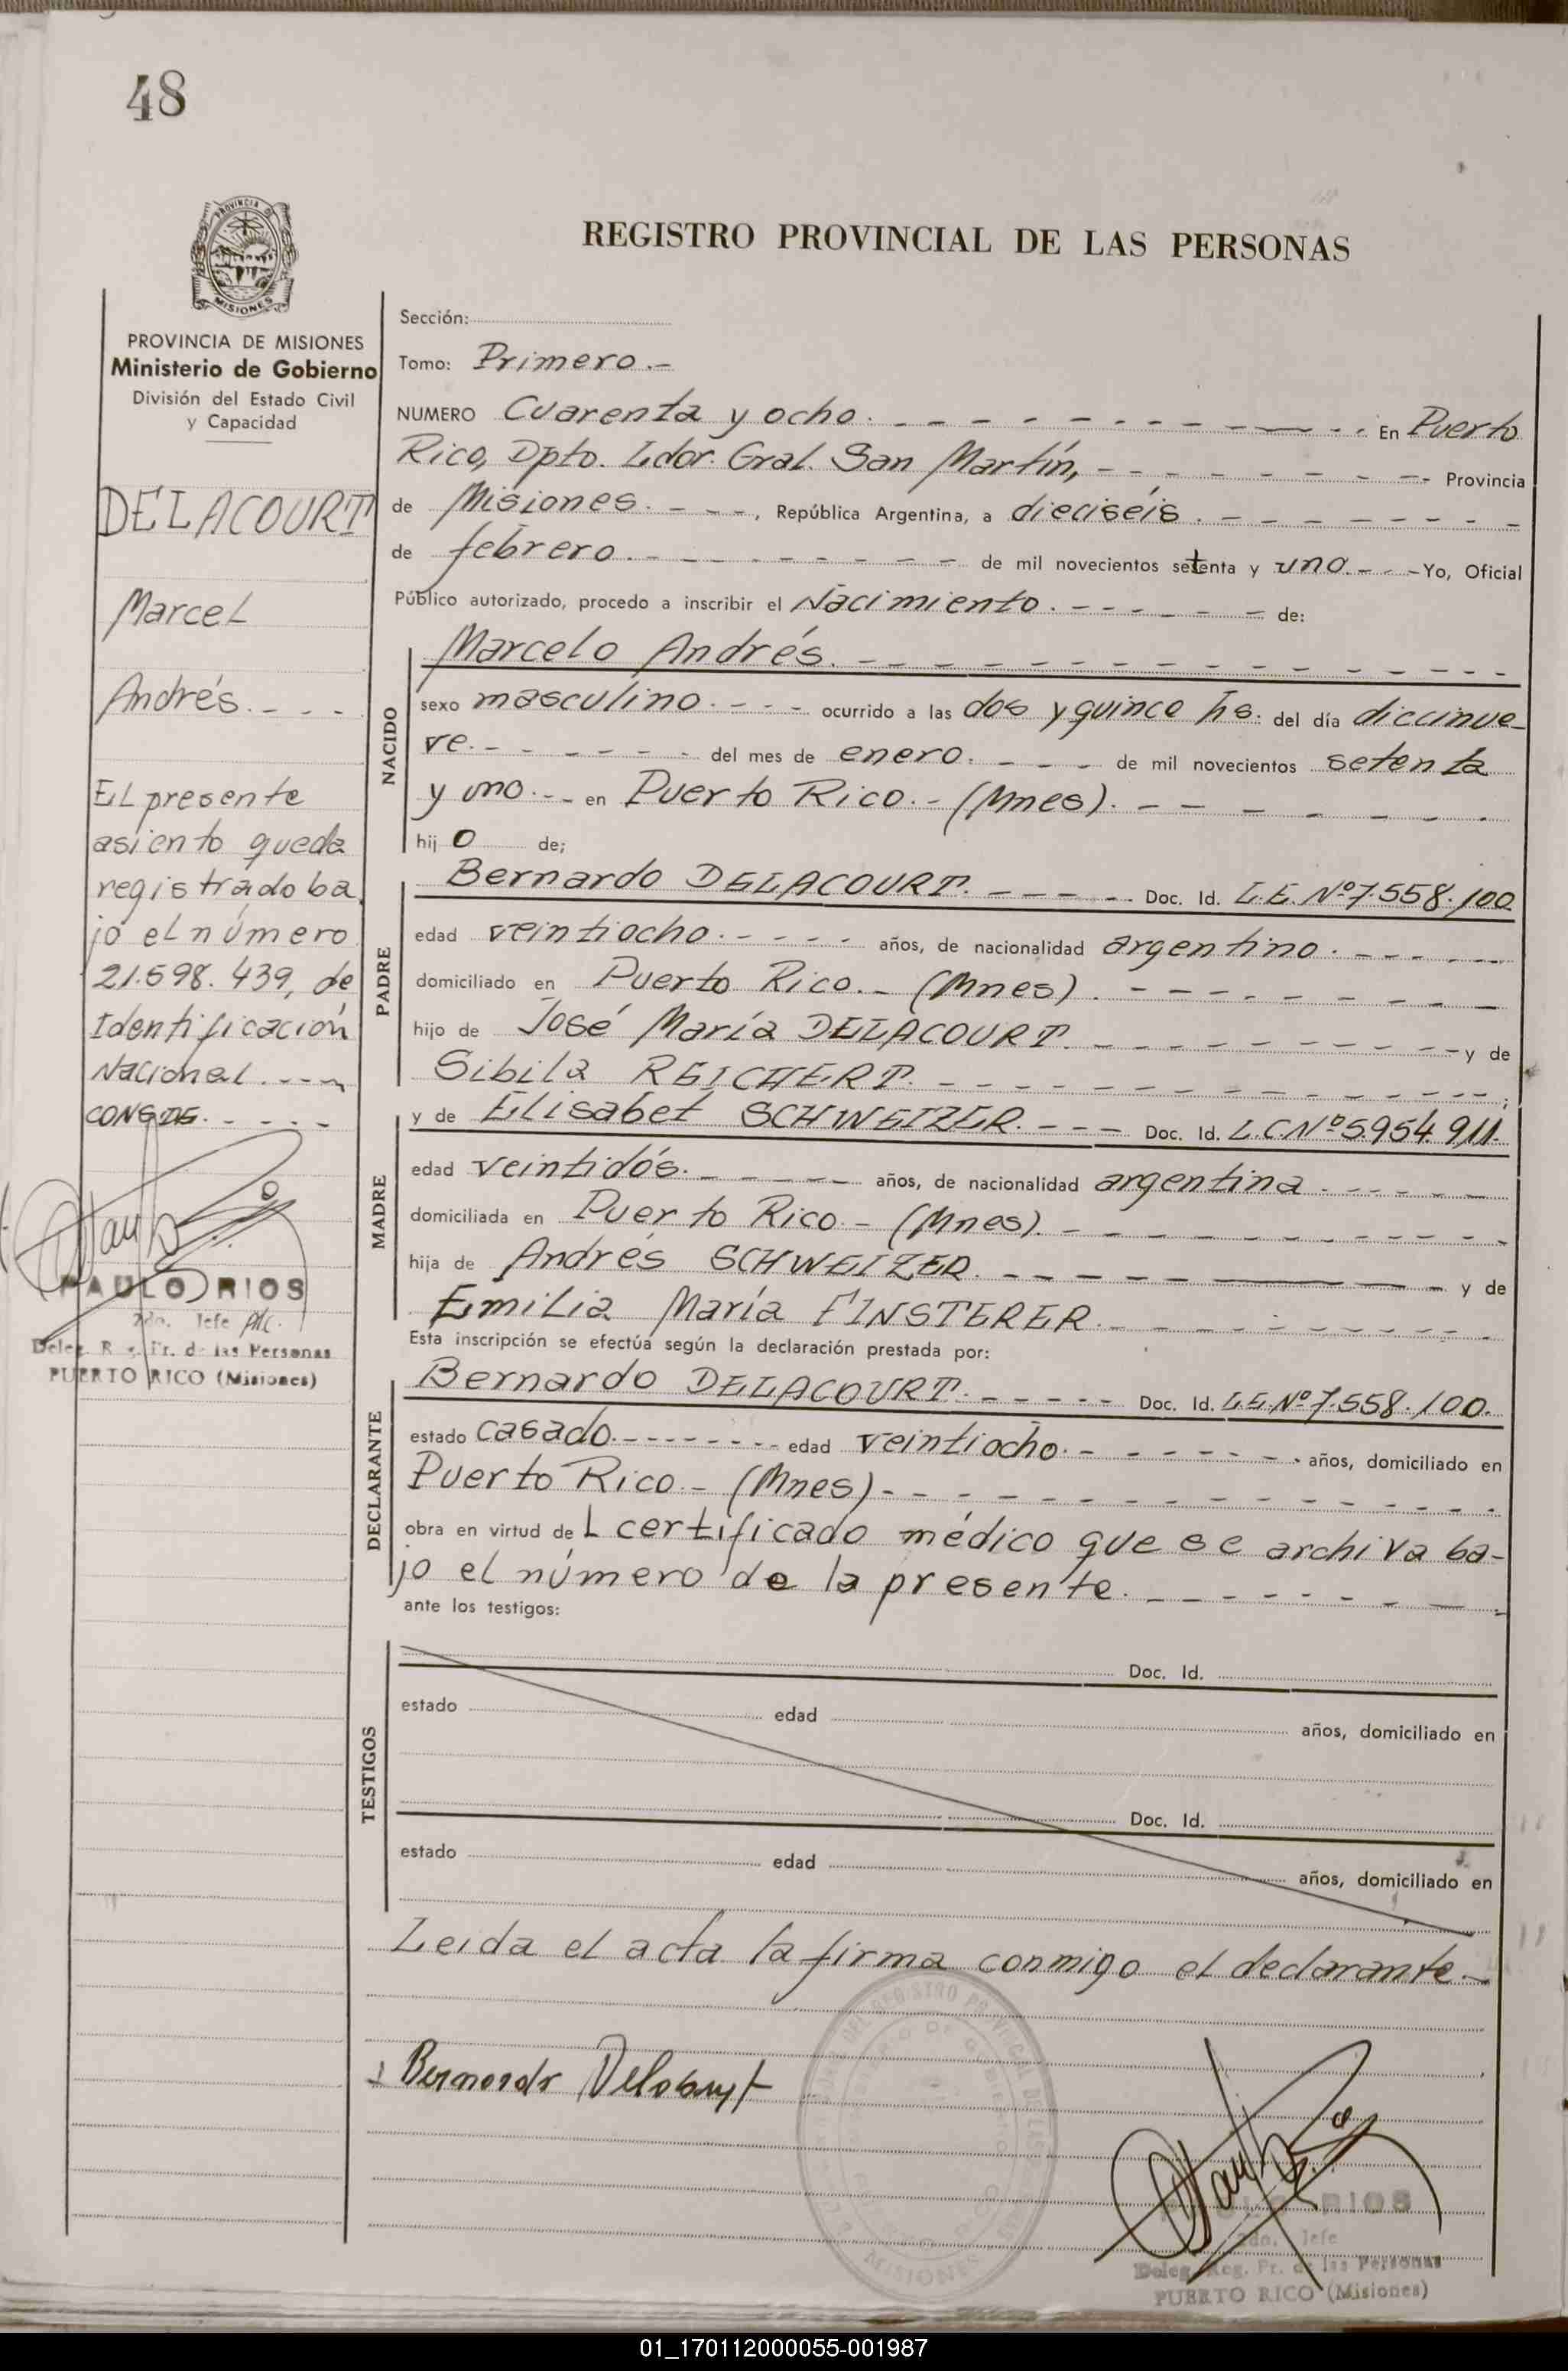 48
PROVINCIA DE
MISIONES
REGISTRO PROVINCIAL DE LAS PERSONAS
PROVINCIA DE MISIONES
Ministerio de Gobierno
División del Estado Civil
y Capacidad
DELACOURT
Marcel
Andrés. - - -
El presente
asiento queda
registrado ba
jo el número
21.598.439, de
Identificación
Nacional. - - -
CONSTE. - - - -
PAULO RIOS
2do. Jefe
Deleg. Reg. Pr. de las Personas
PUERTO RICO (Misiones)
Sección:
Tomo: Primero.-
NUMERO Cuarenta y ocho. - - - - - - - - - En Puerto
Rico, Dpto. Ldor. Gral. San Martín, - - - - - - - - Provincia
de Misiones. - - -, República Argentina, a dieciséis. - - - - - - - -
de febrero. - - - - - - - - de mil novecientos setenta y uno. - - - Yo, Oficial
Público autorizado, procedo a inscribir el Nacimiento. - - - - - - de:
NACIDO
Marcelo Andrés. - - - - - - - - - - - - - - -
sexo masculino. - - - ocurrido a las dos y quince hs. del día diecinue-
ve. - - - - - - del mes de enero. - - - de mil novecientos setenta
y uno. - - en Puerto Rico. - (Mnes). - - - - - - -
hijo de;
PADRE
Bernardo DELACOURT. - - - - - Doc. Id. L.E. Nº 7.558.100
edad veintiocho. - - - - años, de nacionalidad argentino. - - - - - -
domiciliado en Puerto Rico. - (Mnes). - - - - - - - - -
hijo de José María DELACOURT. - - - - - - - - - y de
Sibila REICHERT. - - - - - - - - - - - - - - ;
MADRE
y de Elisabet SCHWEIZER. - - - Doc. Id. L.C Nº 5.954.911.
edad veintidós. - - - - - años, de nacionalidad argentina. - - - - -
domiciliada en Puerto Rico. - (Mnes). - - - - - - - - - -
hija de Andrés SCHWEIZER. - - - - - - - - y de
Emilia María FINSTERER. - - - - - - - - -
Esta inscripción se efectúa según la declaración prestada por:
DECLARANTE
Bernardo DELACOURT. - - - - - Doc. Id. L.E. Nº 7.558.100.
estado casado. - - - - - - - edad veintiocho. - - - - - - años, domiciliado en
Puerto Rico. - (Mnes) - - - - - - - - - - - - - -
obra en virtud del certificado médico que se archiva ba-
jo el número de la presente. - - - - - - - -
ante los testigos:
TESTIGOS
Doc. Id.
estado edad años, domiciliado en
Doc. Id.
estado edad años, domiciliado en
Leida el acta la firma conmigo el declarante.-
Bernardo Delacourt
RIOS
2do. Jefe
Deleg. Reg. Pr. de las Personas
PUERTO RICO (Misiones)
01_170112000055-001987